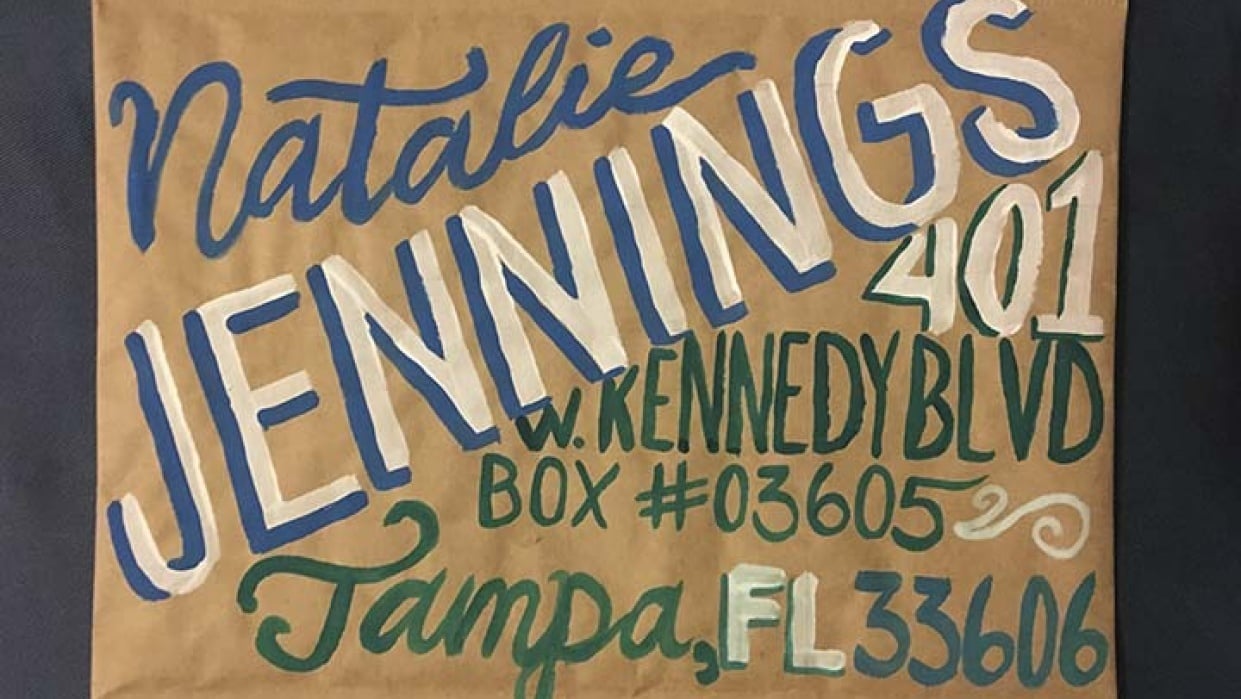 Natalie
JENNINGS
401
W. KENNEDY BLVD
BOX #03605
Tampa, FL 33606